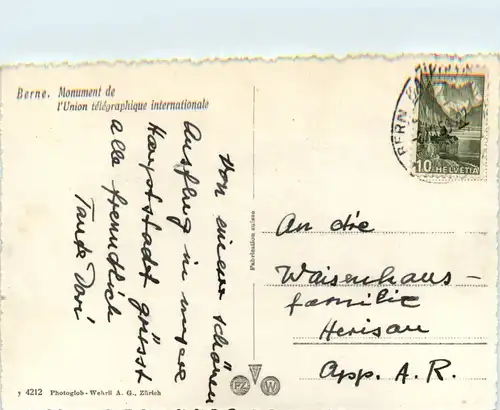 Berne. Monument de
l'Union télégraphique internationale
Von einem schönen
Ausflug in unsere
Hauptstadt grüsst
alle freundlich
Tante Dori
Fabrication suisse
BERN
10 HELVETIA
An die
Waisenhaus-
familie
Herisau
App. A. R.
y 4212 Photoglob-Wehrli A. G., Zürich
PZ W